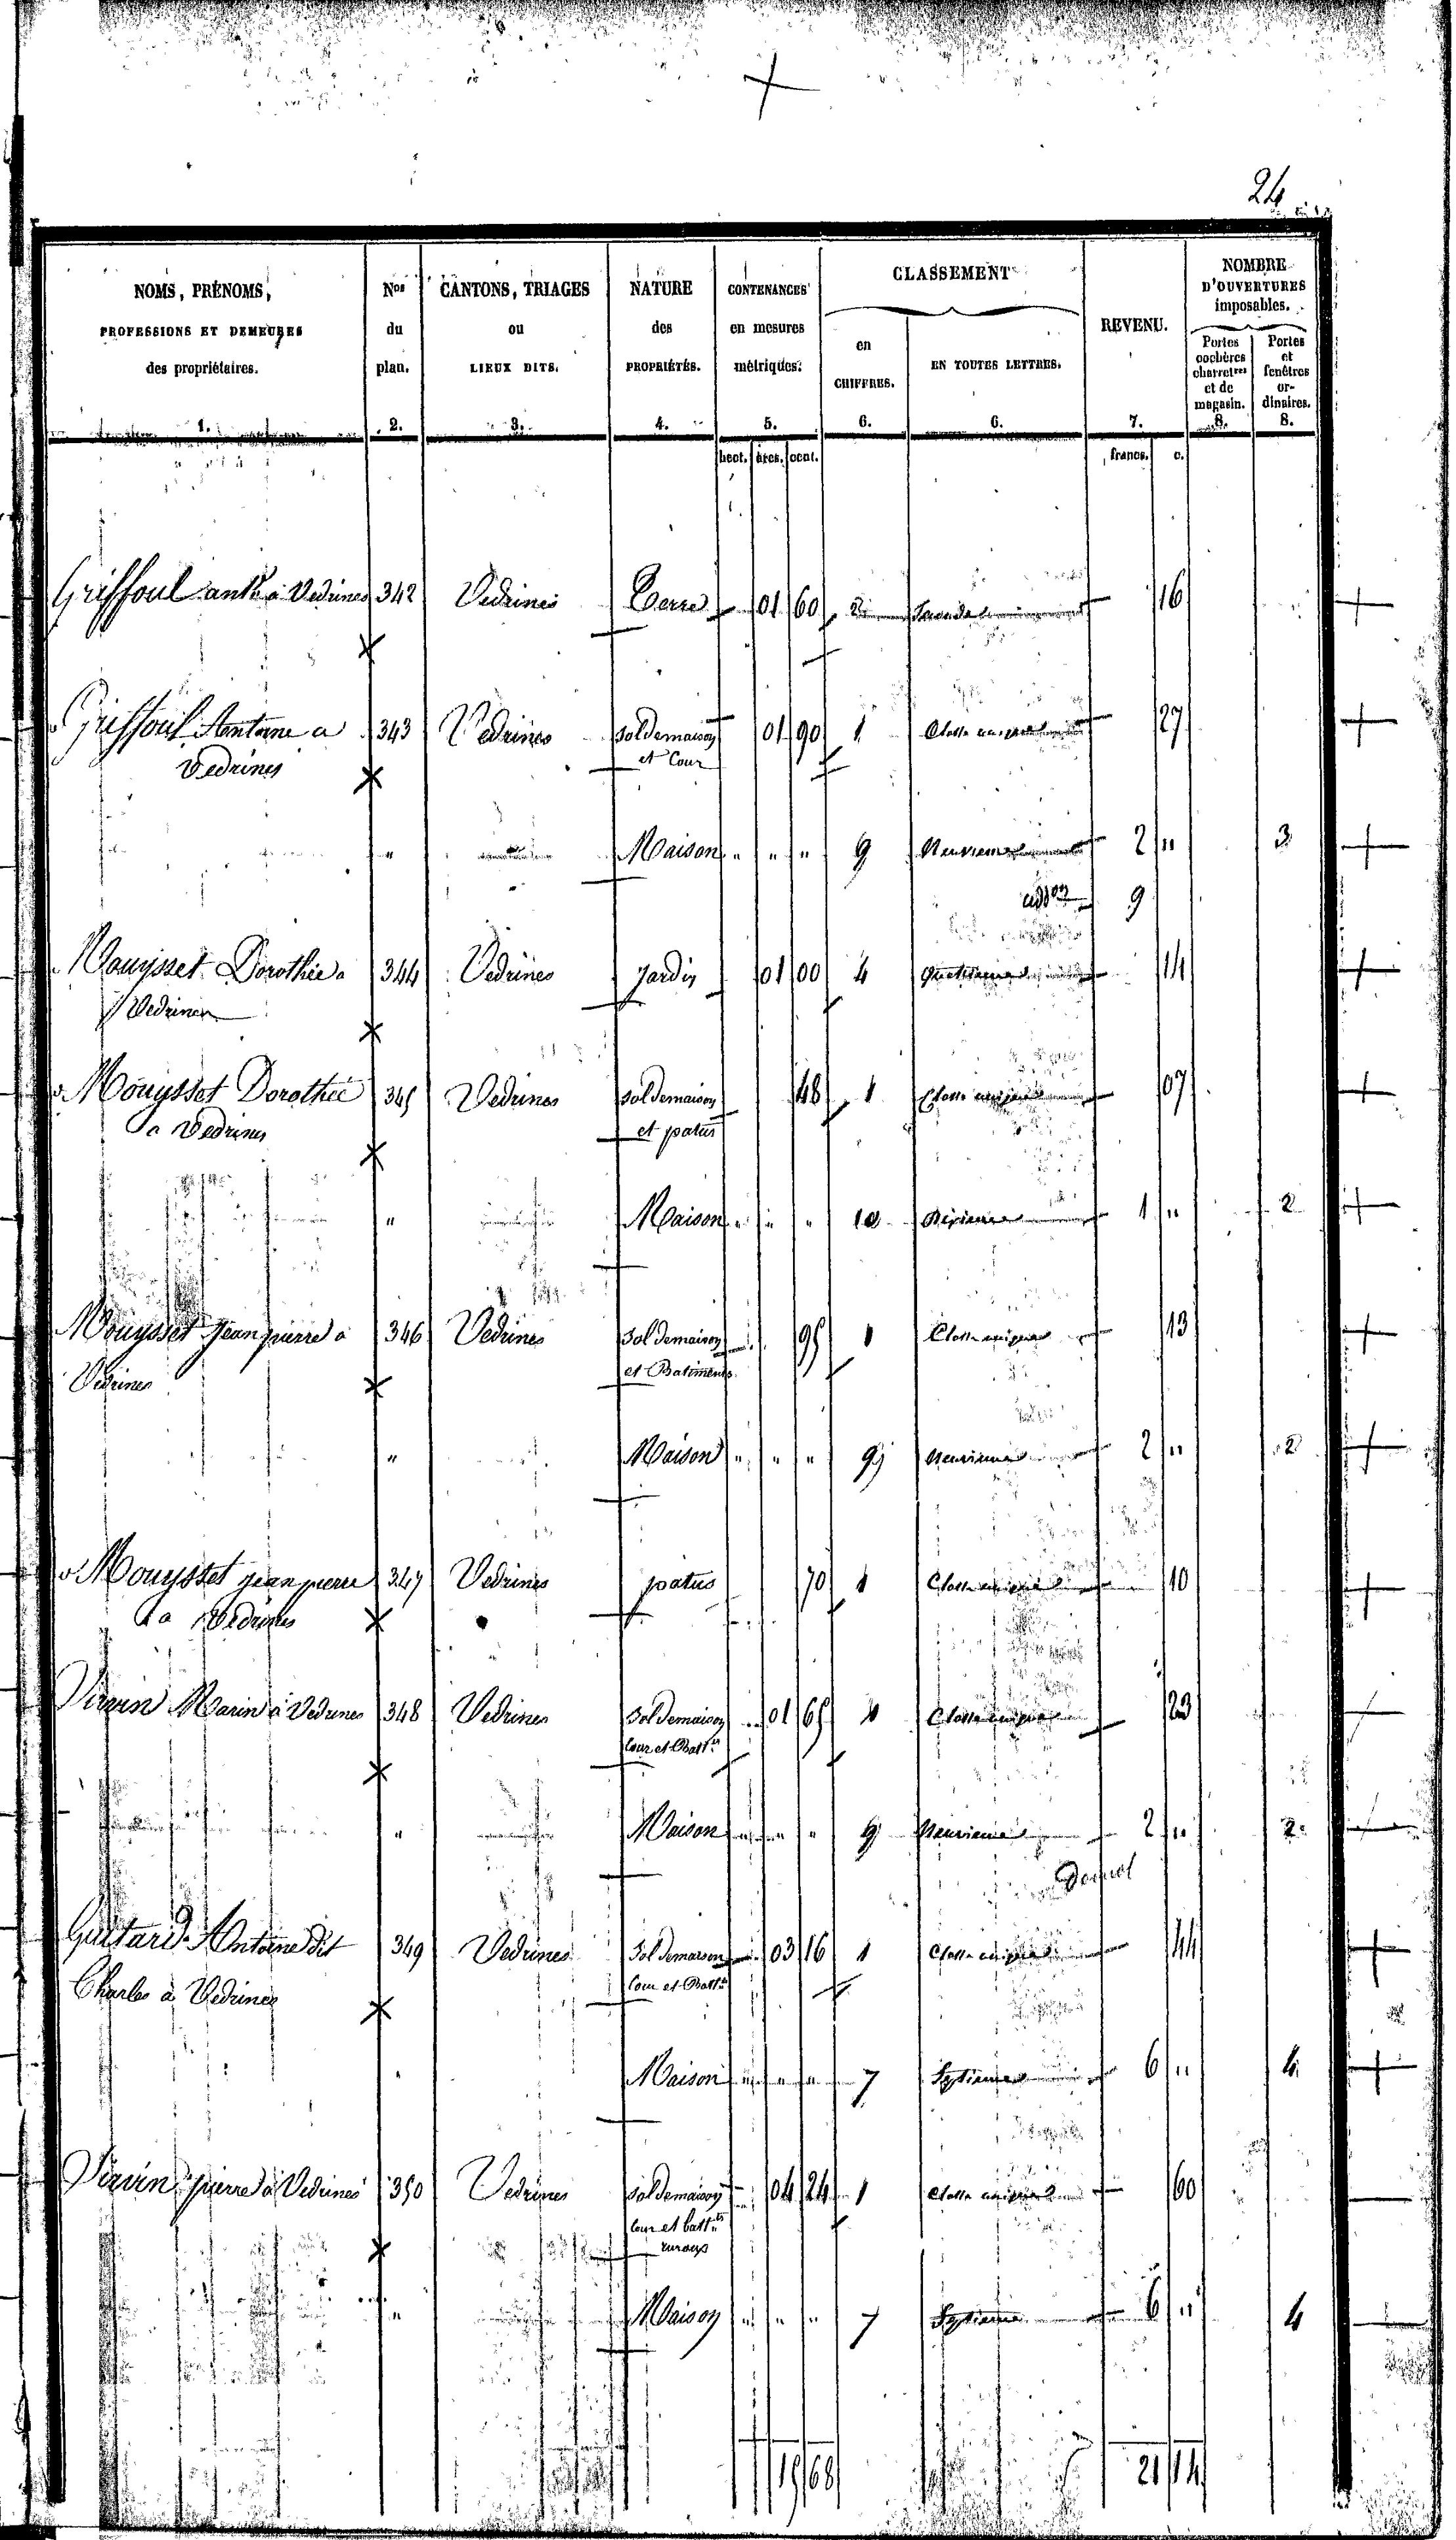 24
NOMS, PRÉNOMS, PROFESSIONS ET DEMEURES des propriétaires. 1.
Nos du plan. 2.
CANTONS, TRIAGES ou LIEUX DITS. 3.
NATURE des PROPRIÉTÉS. 4.
CONTENANCES en mesures métriques. 5.
CLASSEMENT
en CHIFFRES. 6.
EN TOUTES LETTRES. 6.
REVENU. 7.
NOMBRE D'OUVERTURES imposables.
Portes cochères charretres et de magasin. 8.
Portes et fenêtres ordinaires. 8.
hect. ares. cent. francs. c.
Griffoul ante à Vedrines 342 Vedrines Terre 01 60 2 Seconde 16
Griffoul Antoine a 343 Vedrines Sol de maison 01 90 1 Classe unique 27
Vedrines et Cour
" Maison " " " 9 Neuvieme 2 " 3
addon 9
Mouysset Dorothée a 344 Vedrines jardin 01 00 4 Quatrieme 14
Vedrines
Mouysset Dorothée 345 Vedrines Sol de maison 48 1 Classe unique 07
a Vedrines et patus
" Maison " " " 10 Dixieme 1 " 2
Mouysset jean pierre a 346 Vedrines Sol de maison 95 1 Classe unique 13
Vedrines et Batiments
" Maison " " " 9 Neuvieme 2 " 2
Mouysset jean pierre 347 Vedrines patus 70 1 Classe unique 10
a Vedrines
Virvin Marin à Vedrines 348 Vedrines Sol de maison 01 65 1 Classe unique 23
Cour et Batts
" Maison " " " 9 Neuvieme 2 " 2
Guitard Antoine dit 349 Vedrines Sol de maison 03 16 1 Classe unique 44
Charles à Vedrines Cour et Batts
Maison " " " 7 Septieme 6 " 4
Virvin pierre à Vedrines 350 Vedrines Sol de maison 04 24 1 Classe unique 60
Cour et batts
ruraux
" Maison " " " 7 Septieme 6 " 4
15 68 21 14